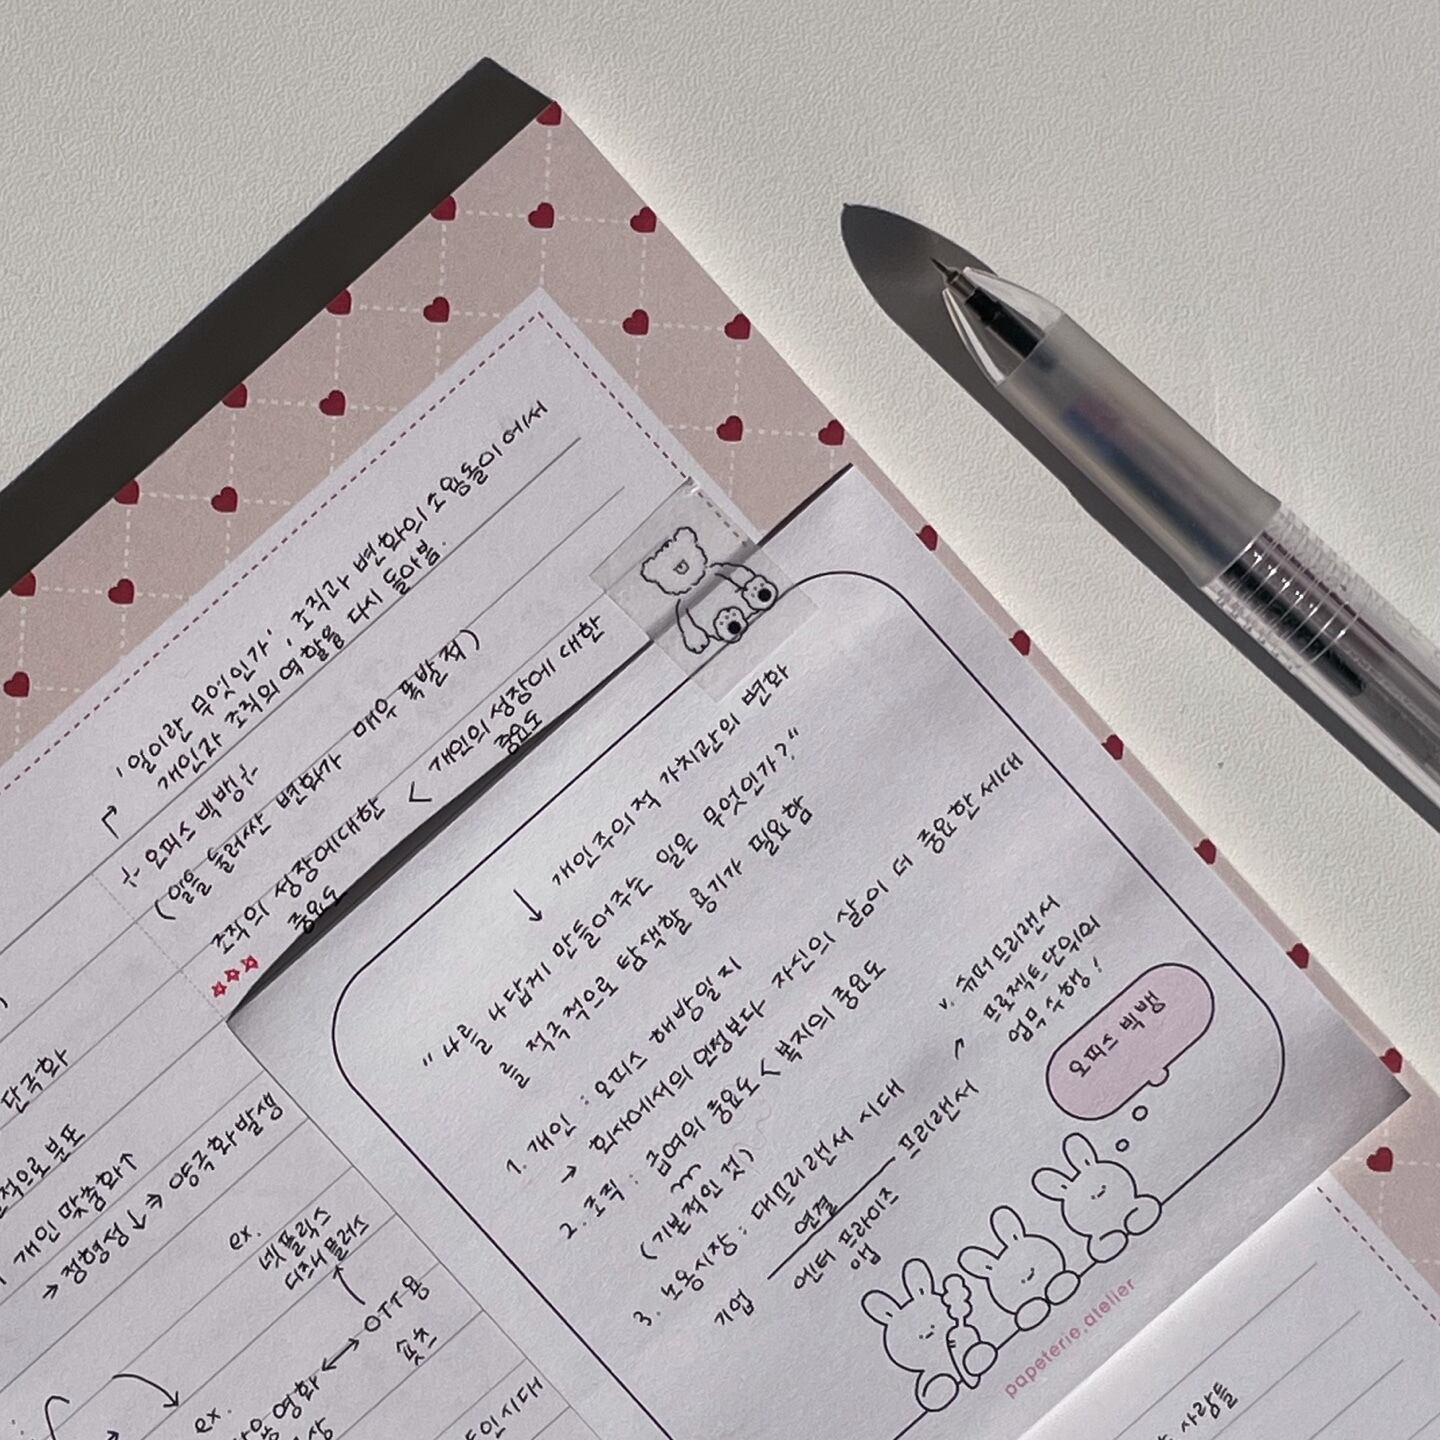 '일이란 무엇인가', 조직과 변화의 소용돌이 에서
개인과 조직의 역할을 다시 돌아봄.
오피스 빅뱅
(일을 둘러싼 변화가 매우 폭발적)
조직의 성장에대한 < 개인의 성장에 대한
중요도 중요도
단극화
적으로 분포
개인 맞춤화↑
→ 정형성↓ ⇒ 양극화 발생
ex.
넷플릭스
디즈니플러스
↑
영화 ↔ OTT용
숏츠
ex.
인시대
↓ 개인주의적 가치관의 변화
"나를 나답게 만들어주는 일은 무엇인가?"
를 적극적으로 탐색할 용기가 필요함
1. 개인 : 오피스 해방일지
→ 회사에서의 인정보다 자신의 삶이 더 중요한 세대
2. 조직 : 급여의 중요도 < 복지의 중요도
(기본적인 것)
3. 노동시장 : 대프리랜서 시대
기업 연결 프리랜서
엔터프라이즈
앱
v. 슈퍼프리랜서
프로젝트 단위의
업무 수행!
오피스 빅뱅
papeterie.atelier
사람들